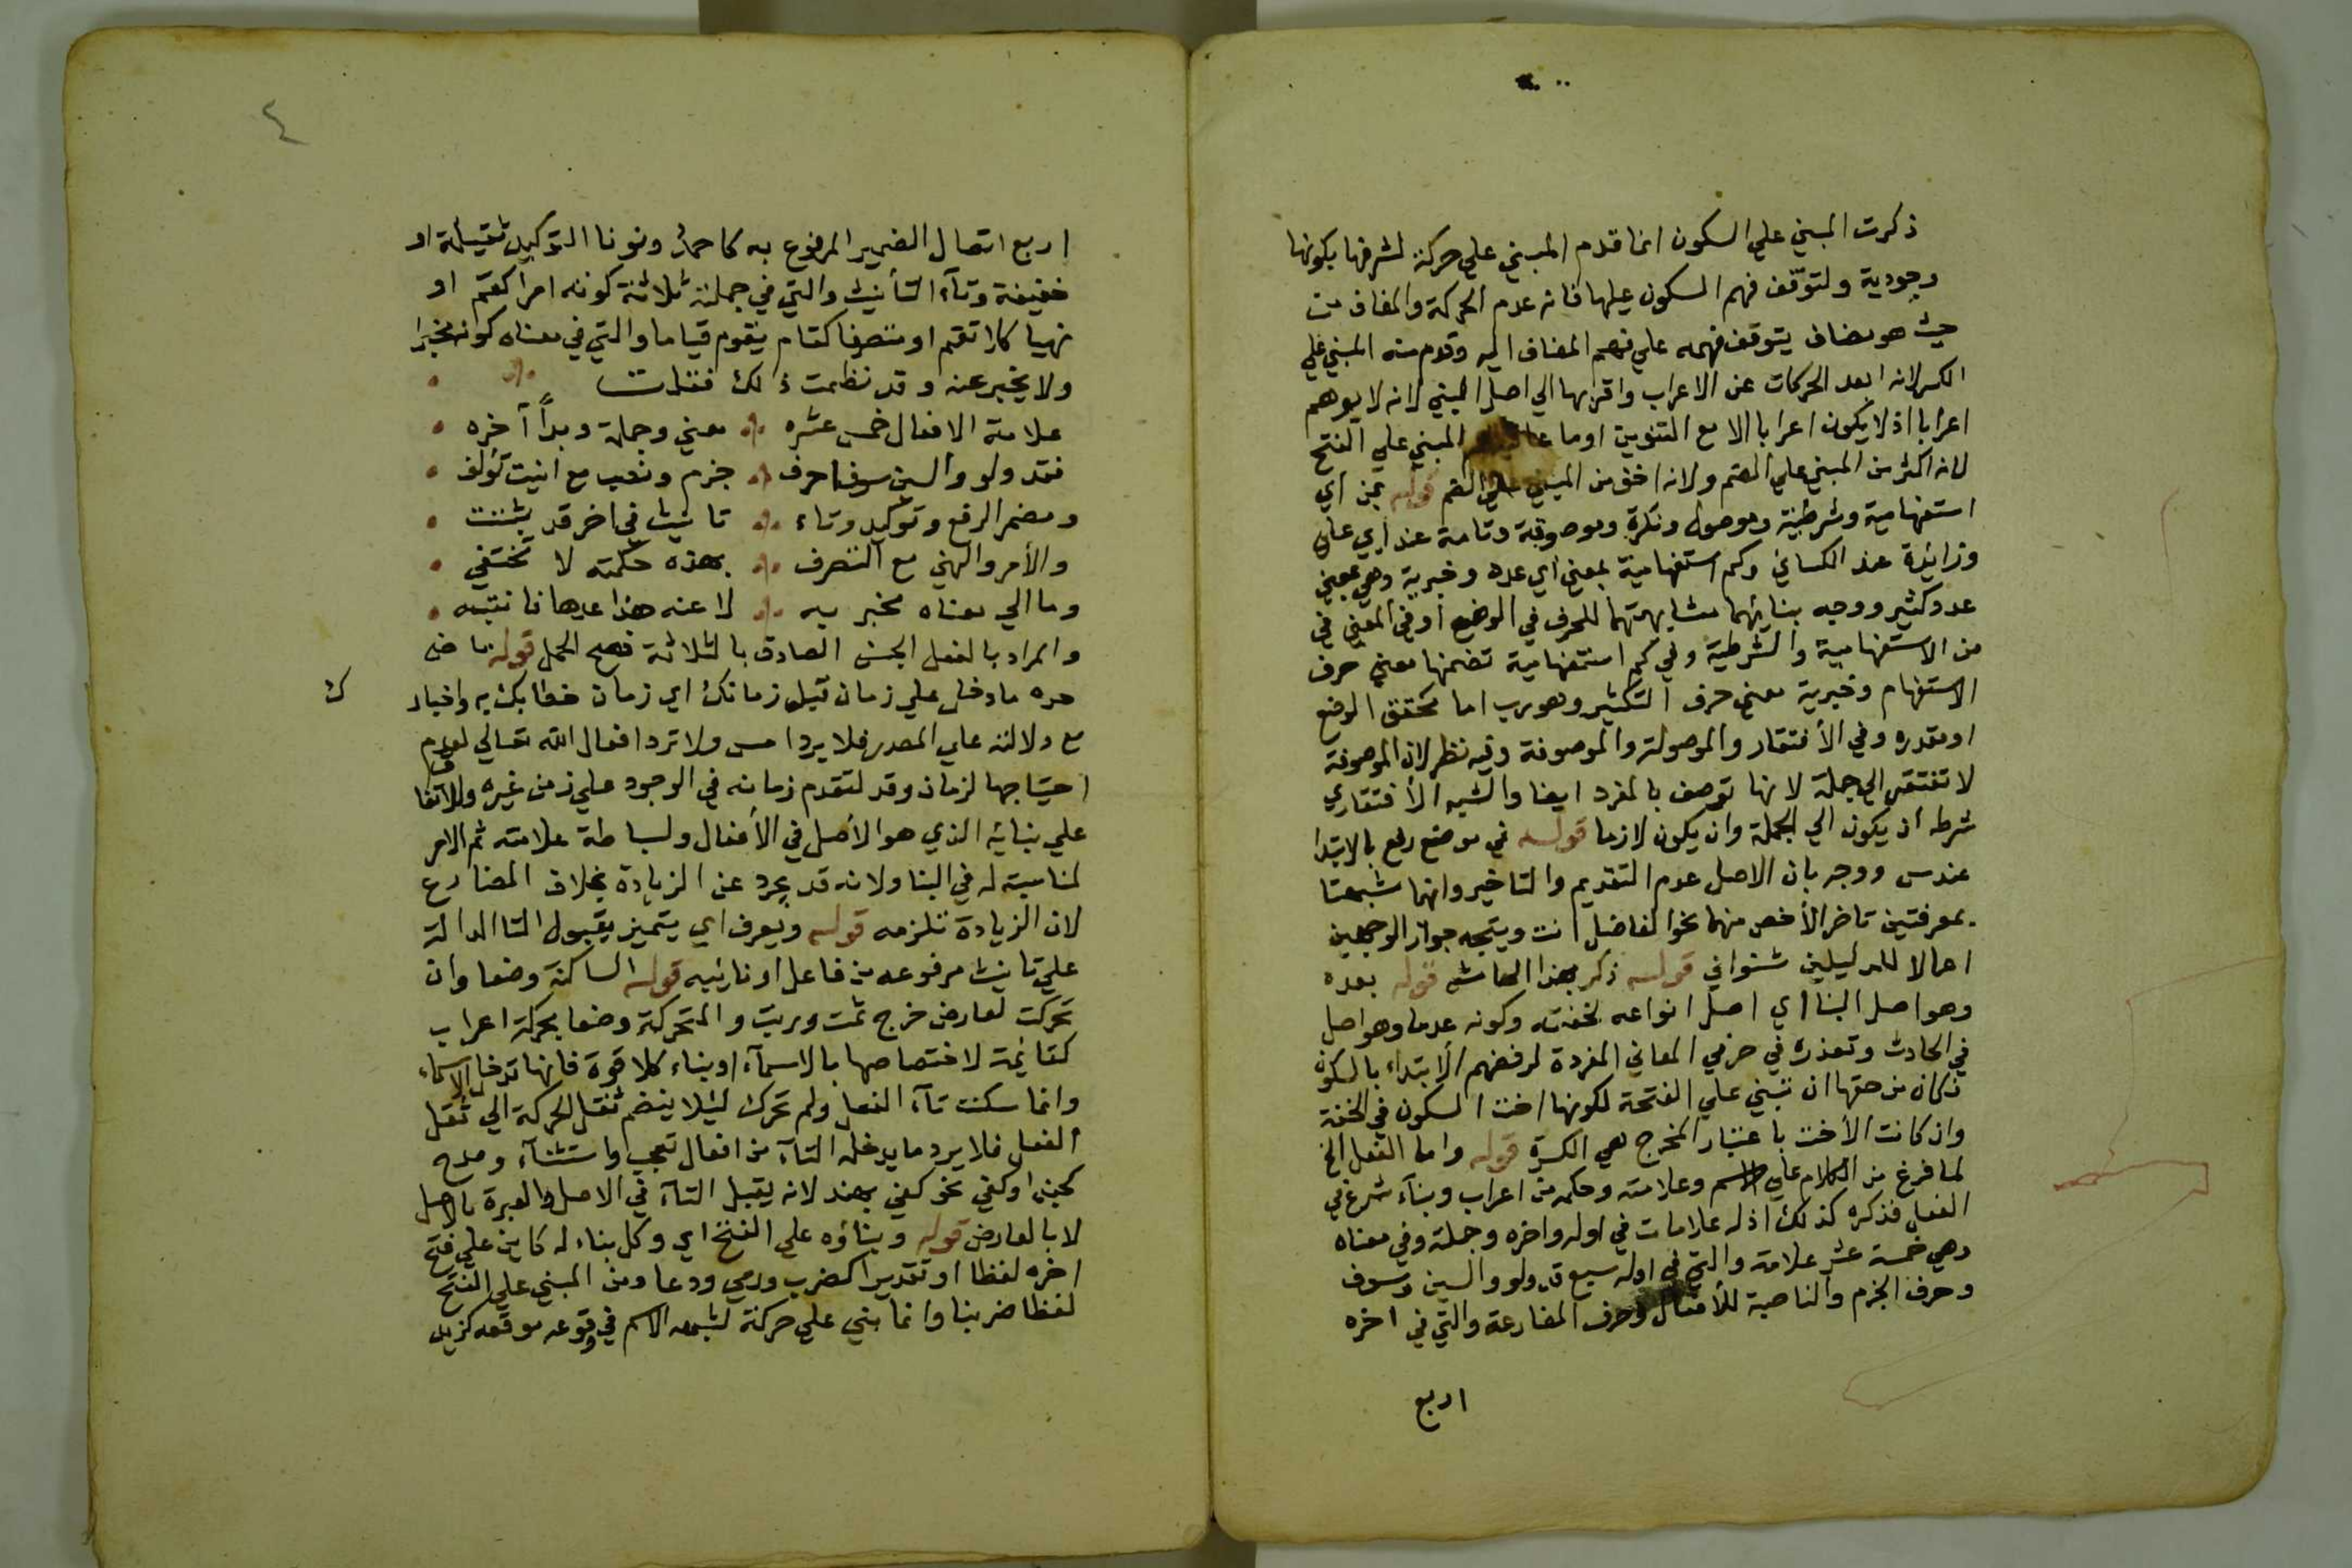 ذكرت المبني علي السكون انما قدم المبني علي حركة لشرفها بكونها
وجودية ولتوقف فهم السكون عليها فانه عدم الحركة والمضاف من
حيث هو مضاف يتوقف فهمه علي فهم المضاف اليه وقدم منه المبني علي
الكسر لانه ابعد الحركات عن الاعراب واقربها الي اصل المبني لانه لا يوهم
اعرابا اذ لا يكون اعرابا الا مع التنوين اوما المبني علي الفتح
لانه اكثر من المبني علي الضم ولانه اخف من المبني علي الضم قوله بمن اي
استفهامية وشرطية وموصولة ونكرة وموصوفة وتامة عند ابي علي
وزايدة عند الكسائي وكم استفهامية بمعني اي عدد وخبرية وهي بمعني
عدد كثير ووجه بنائهما مشابهتهما للحرف في الوضع او في المعني في
من الاستفهامية والشرطية وفي كم استفهامية تضمنها معني حرف
الاستفهام وخبرية معني حرف التكثير وهو رب اما محقق الوضع
او مقدره وفي الأفتقار والموصولة والموصوفة وفيه نظر لان الموصوفة
لا تفتقر الي جملة لانها توصف بالمفرد ايضا والشبه الأفتقاري
شرطه ان يكون الي الجملة وان يكون لازما قوله في موضع رفع بالابتدا
عندس ووجه بان الاصل عدم التقديم والتاخير وانهما شبهتا
بمعرفتين تاخر الأخص منهما نحو الفاضل انت ويتجه جواز الوجهين
اعمالا للدليلين شنواني قوله ذكر بهذا الحاشية قوله بعده
وهو اصل البنا اي اصل انواعه لخفته وكونه عدما وهو اصل
في الحادث وتعذره في حرفي المعاني المفردة لرفضهم الابتداء بالسكون
فكان من حقها ان تبني علي الفتحة لكونها اخت السكون في الخفة
وان كانت الأخت باعتبار المخرج هي الكسرة قوله واما الفعل الخ
لما فرغ من الكلام علي الاسم وعلامته وحكمه من اعراب وبناء شرع في
الفعل فذكره كذلك اذ له علامات في اوله واخره وجملة وفي معناه
وهي خمسة عشر علامة والتي في اوله سبع قد ولو والسين وسوف
وحرف الجزم والناصبة للأفعال وحرف المضارعة والتي في اخره
اربع
٤
اربع اتصال الضمير المرفوع به كاحمد ونونا التوكيد ثقيلة او
خفيفة وتآء التأنيث والتي في جملته ثلاثة كونه امرا كقم او
نهيا كلا تقم او متصرفا كقام يقوم قياما والتي في معناه كونه مخبرا
ولا يخبر عنه وقد نظمت ذلك فقلت
علامة الافعال خمس عشره معني وجملة وبدأ آخره
فقد ولو والسين سوف احرف جزم ونصب مع انيت تؤلف
ومضمر الرفع وتوكيد وتاء تانيث في اخر قد يثبتت
والأمر والنهي مع التصرف بهذه حكمته لا تختفي
وما الي معناه مخبر به لا عنه هذا عدها فانتبه
والمراد بالفعل الجنس الصادق بالثلاثة فصح الحمل قوله ماض
حده ما دخل علي زمان قبل زمانك اي زمان خطابك به واخبار ك
مع دلالته علي المصدر فلا يرد امس ولا ترد افعال الله تعالي لعدم
احتياجها لزمان وقد لتقدم زمانه في الوجود علي زمن غيره وللاتفاق
علي بنائه الذي هو الأصل في الأفعال ولبساطة علامته ثم الامر
لمناسبته له في البنا ولانه قد يجرد عن الزيادة بخلاف المضارع
لان الزيادة تلزمه قوله ويعرف اي يتميز بقبول التا الدالة
علي تانيث مرفوعه من فاعل او نائبه قوله الساكنة وضعا وان
تحركت لعارض خرج ثمت وربت والمتحركة وضعا بحركة اعراب
كقائمة لاختصاصها بالاسمآء او بناء كلا قوة فانها تدخل الاسماء
وانما سكنت تآء الفعل ولم تحرك ليلا ينضم ثقل الحركة الي ثقل
الفعل فلا يرد ما يدخله التآء من افعال تعجب واستثنآء ومدح
كحبذا وكفي نحو كفي بهند لانه يقبل التآء في الاصل والعبرة بالاصل
لا بالعارض قوله وبناؤه علي الفتح اي وكل بناء له كاين علي فتح
اخره لفظا او تقديرا كضرب ورمي ودعا ومن المبني علي الفتح
لفظا ضربنا وانما بني علي حركة لشبهه الاسم في وقوعه موقعه كزيد